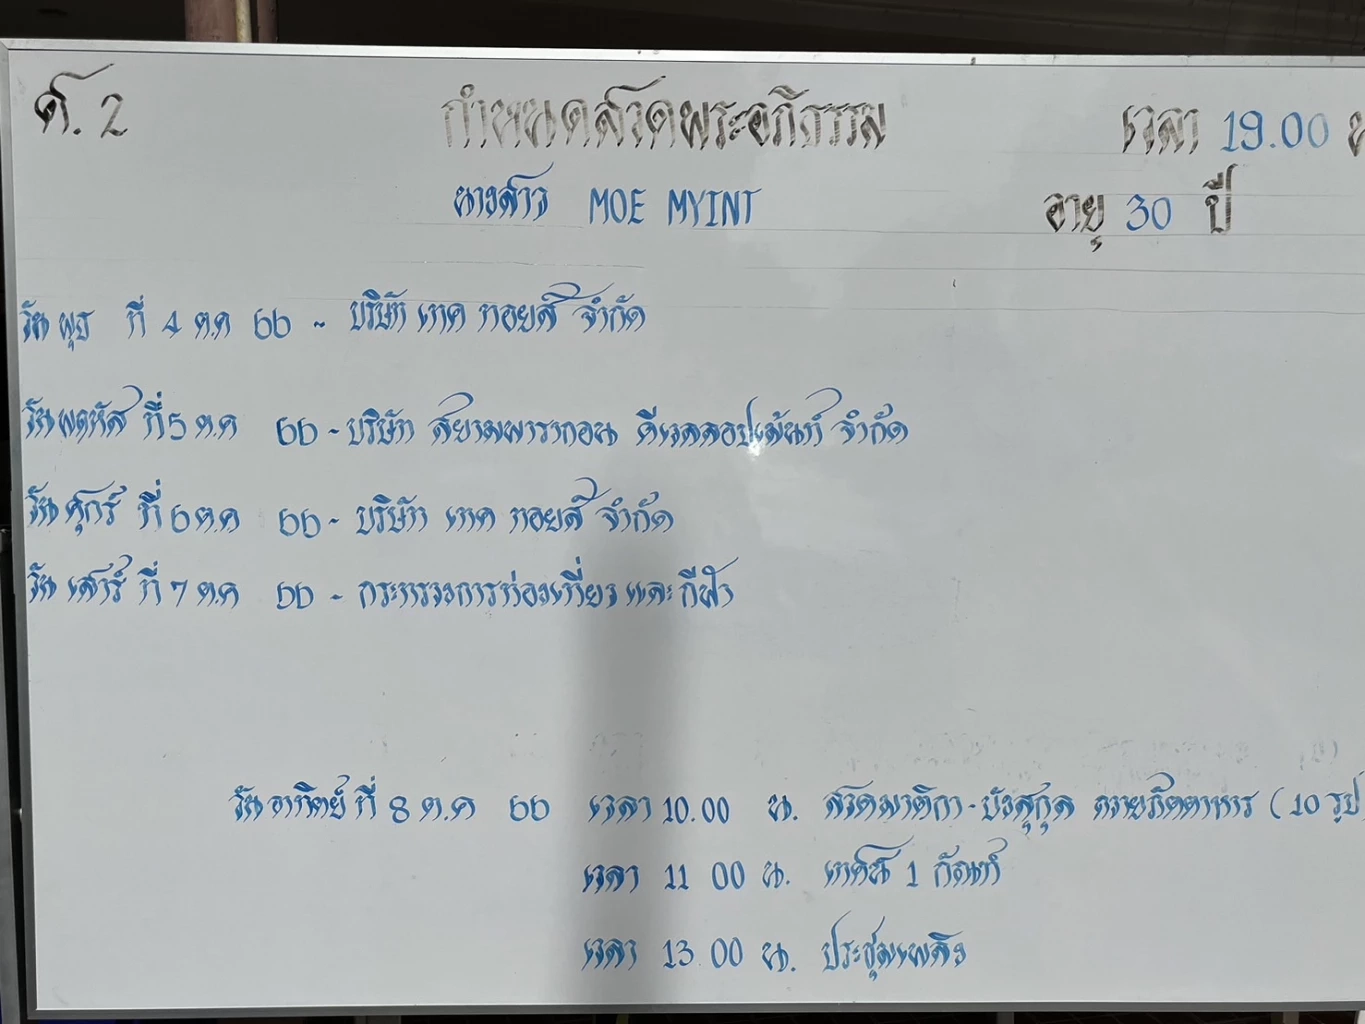 ศ. 2 กำหนดสวดพระอภิธรรม เวลา 19.00 น
นางสาว MOE MYINT อายุ 30 ปี
วันพุธ ที่ 4 ต.ค 66 - บริษัท เทค ทอยส์ จำกัด
วันพฤหัส ที่ 5 ต.ค 66 - บริษัท สยามพารากอน ดีเวลลอปเม้นท์ จำกัด
วันศุกร์ ที่ 6 ต.ค 66 - บริษัท เทค ทอยส์ จำกัด
วันเสาร์ ที่ 7 ต.ค 66 - กระทรวงการท่องเที่ยว และ กีฬา
วันอาทิตย์ ที่ 8 ต.ค 66 เวลา 10.00 น. สวดมาติกา - บังสุกุล ถวายภัตตาหาร (10 รูป
เวลา 11 00 น. เทศน์ 1 กัณฑ์
เวลา 13.00 น. ประชุมเพลิง